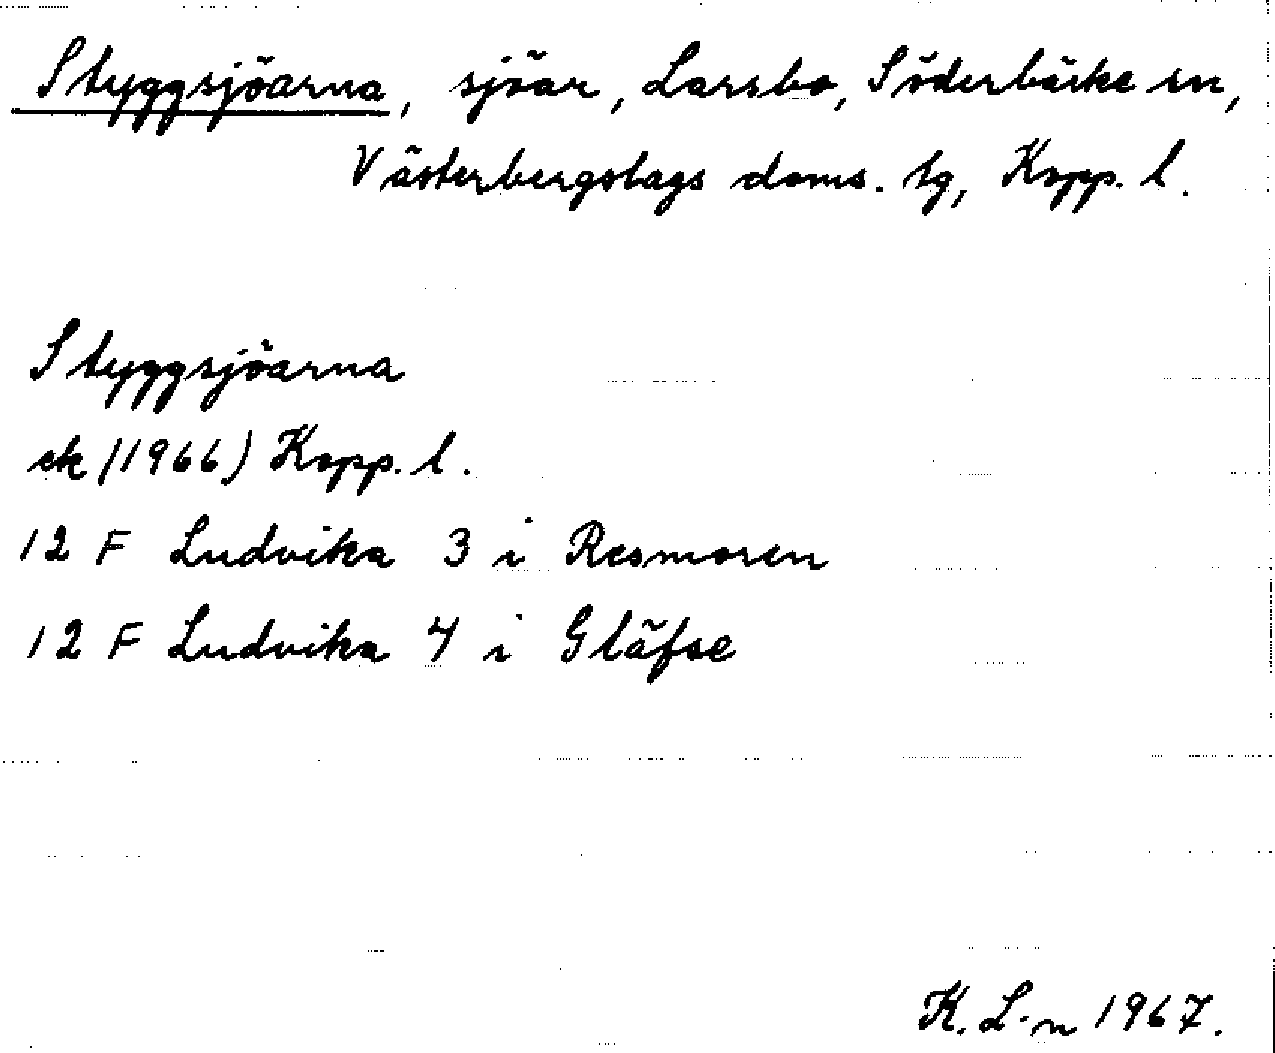 Styggsjöarna, sjöar, Larsbo, Söderbärke sn,
Västerbergslags doms. tg, Kopp. l.
Styggsjöarna
ek (1966) Kopp. l.
12 F Ludvika 3 i Resmoren
12 F Ludvika 4 i Gläfse
K. L-n 1967.